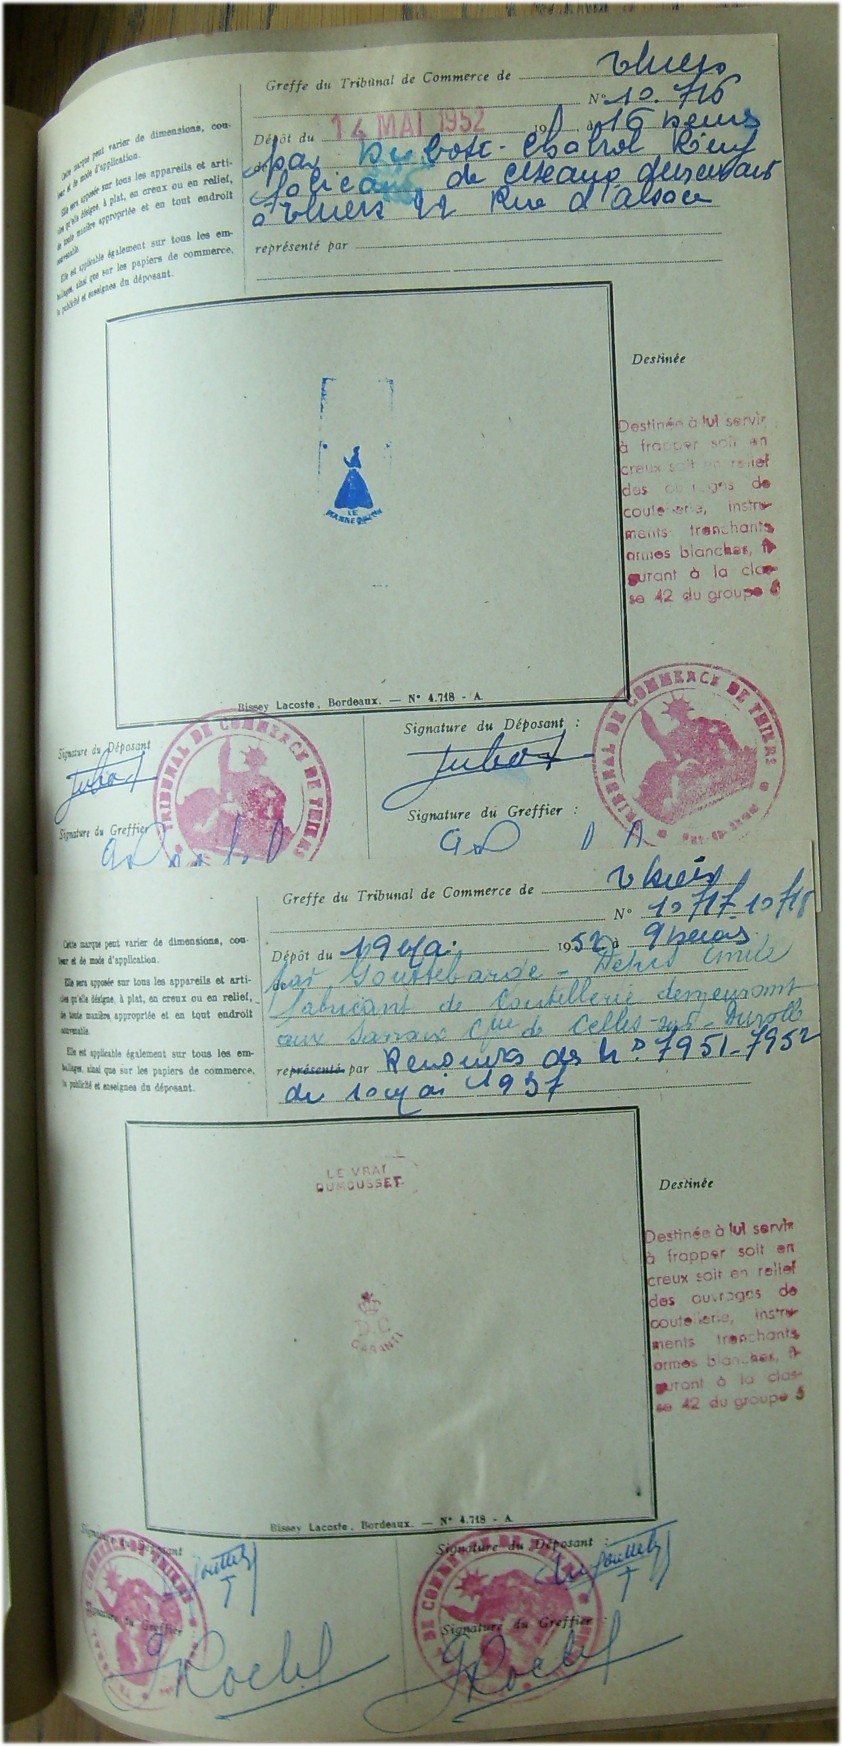 Greffe du Tribunal de Commerce de Thiers
N° 10.716
Dépôt du 14 MAI 1952 19 , à 16 heures
par Dubost-Chabrol Rémy
fabricant de ciseaux demeurant
à Thiers 22 Rue d'alsace
représenté par
Cette marque peut varier de dimensions, cou-
leur et de mode d'application.
Elle sera apposée sur tous les appareils et arti-
cles qu'elle désigne, à plat, en creux ou en relief,
de toute manière appropriée et en tout endroit
convenable.
Elle est applicable également sur tous les em-
ballages, ainsi que sur les papiers de commerce,
la publicité et enseignes du déposant.
LE
MANNEQUIN
Destinée
Destinée à lui servir
à frapper soit en
creux soit en relief
des ouvrages de
coutellerie, instru-
ments tranchants,
armes blanches, fi-
gurant à la clas-
se 42 du groupe 5
Bissey Lacoste, Bordeaux. — N° 4.718 - A
Signature du Déposant
Signature du Greffier
TRIBUNAL DE COMMERCE DE THIERS
Signature du Déposant :
Dubost
Signature du Greffier :
TRIBUNAL DE COMMERCE DE THIERS
Greffe du Tribunal de Commerce de Thiers
N° 10717-10718
Dépôt du 19 mai 1952 à 9 heures
par Gouttebarge-
fabricant de Coutellerie demeurant
aux Sarraix Cne de Celles-sur-Durolle
représenté par Renouv des Nos 7951-7952
du 10 mai 1937
Cette marque peut varier de dimensions, cou-
leur et de mode d'application.
Elle sera apposée sur tous les appareils et arti-
cles qu'elle désigne, à plat, en creux ou en relief,
de toute manière appropriée et en tout endroit
convenable.
Elle est applicable également sur tous les em-
ballages, ainsi que sur les papiers de commerce,
la publicité et enseignes du déposant.
LE VRAI
DUMOUSSET
D.C
GARANTI
Destinée
Destinée à lui servir
à frapper soit en
creux soit en relief
des ouvrages de
coutellerie, instru-
ments tranchants,
armes blanches, fi-
gurant à la clas-
se 42 du groupe 5
Bissey Lacoste, Bordeaux. — N° 4.718 - A
Signature du Déposant
Signature du Greffier
Signature du Déposant :
Signature du Greffier :